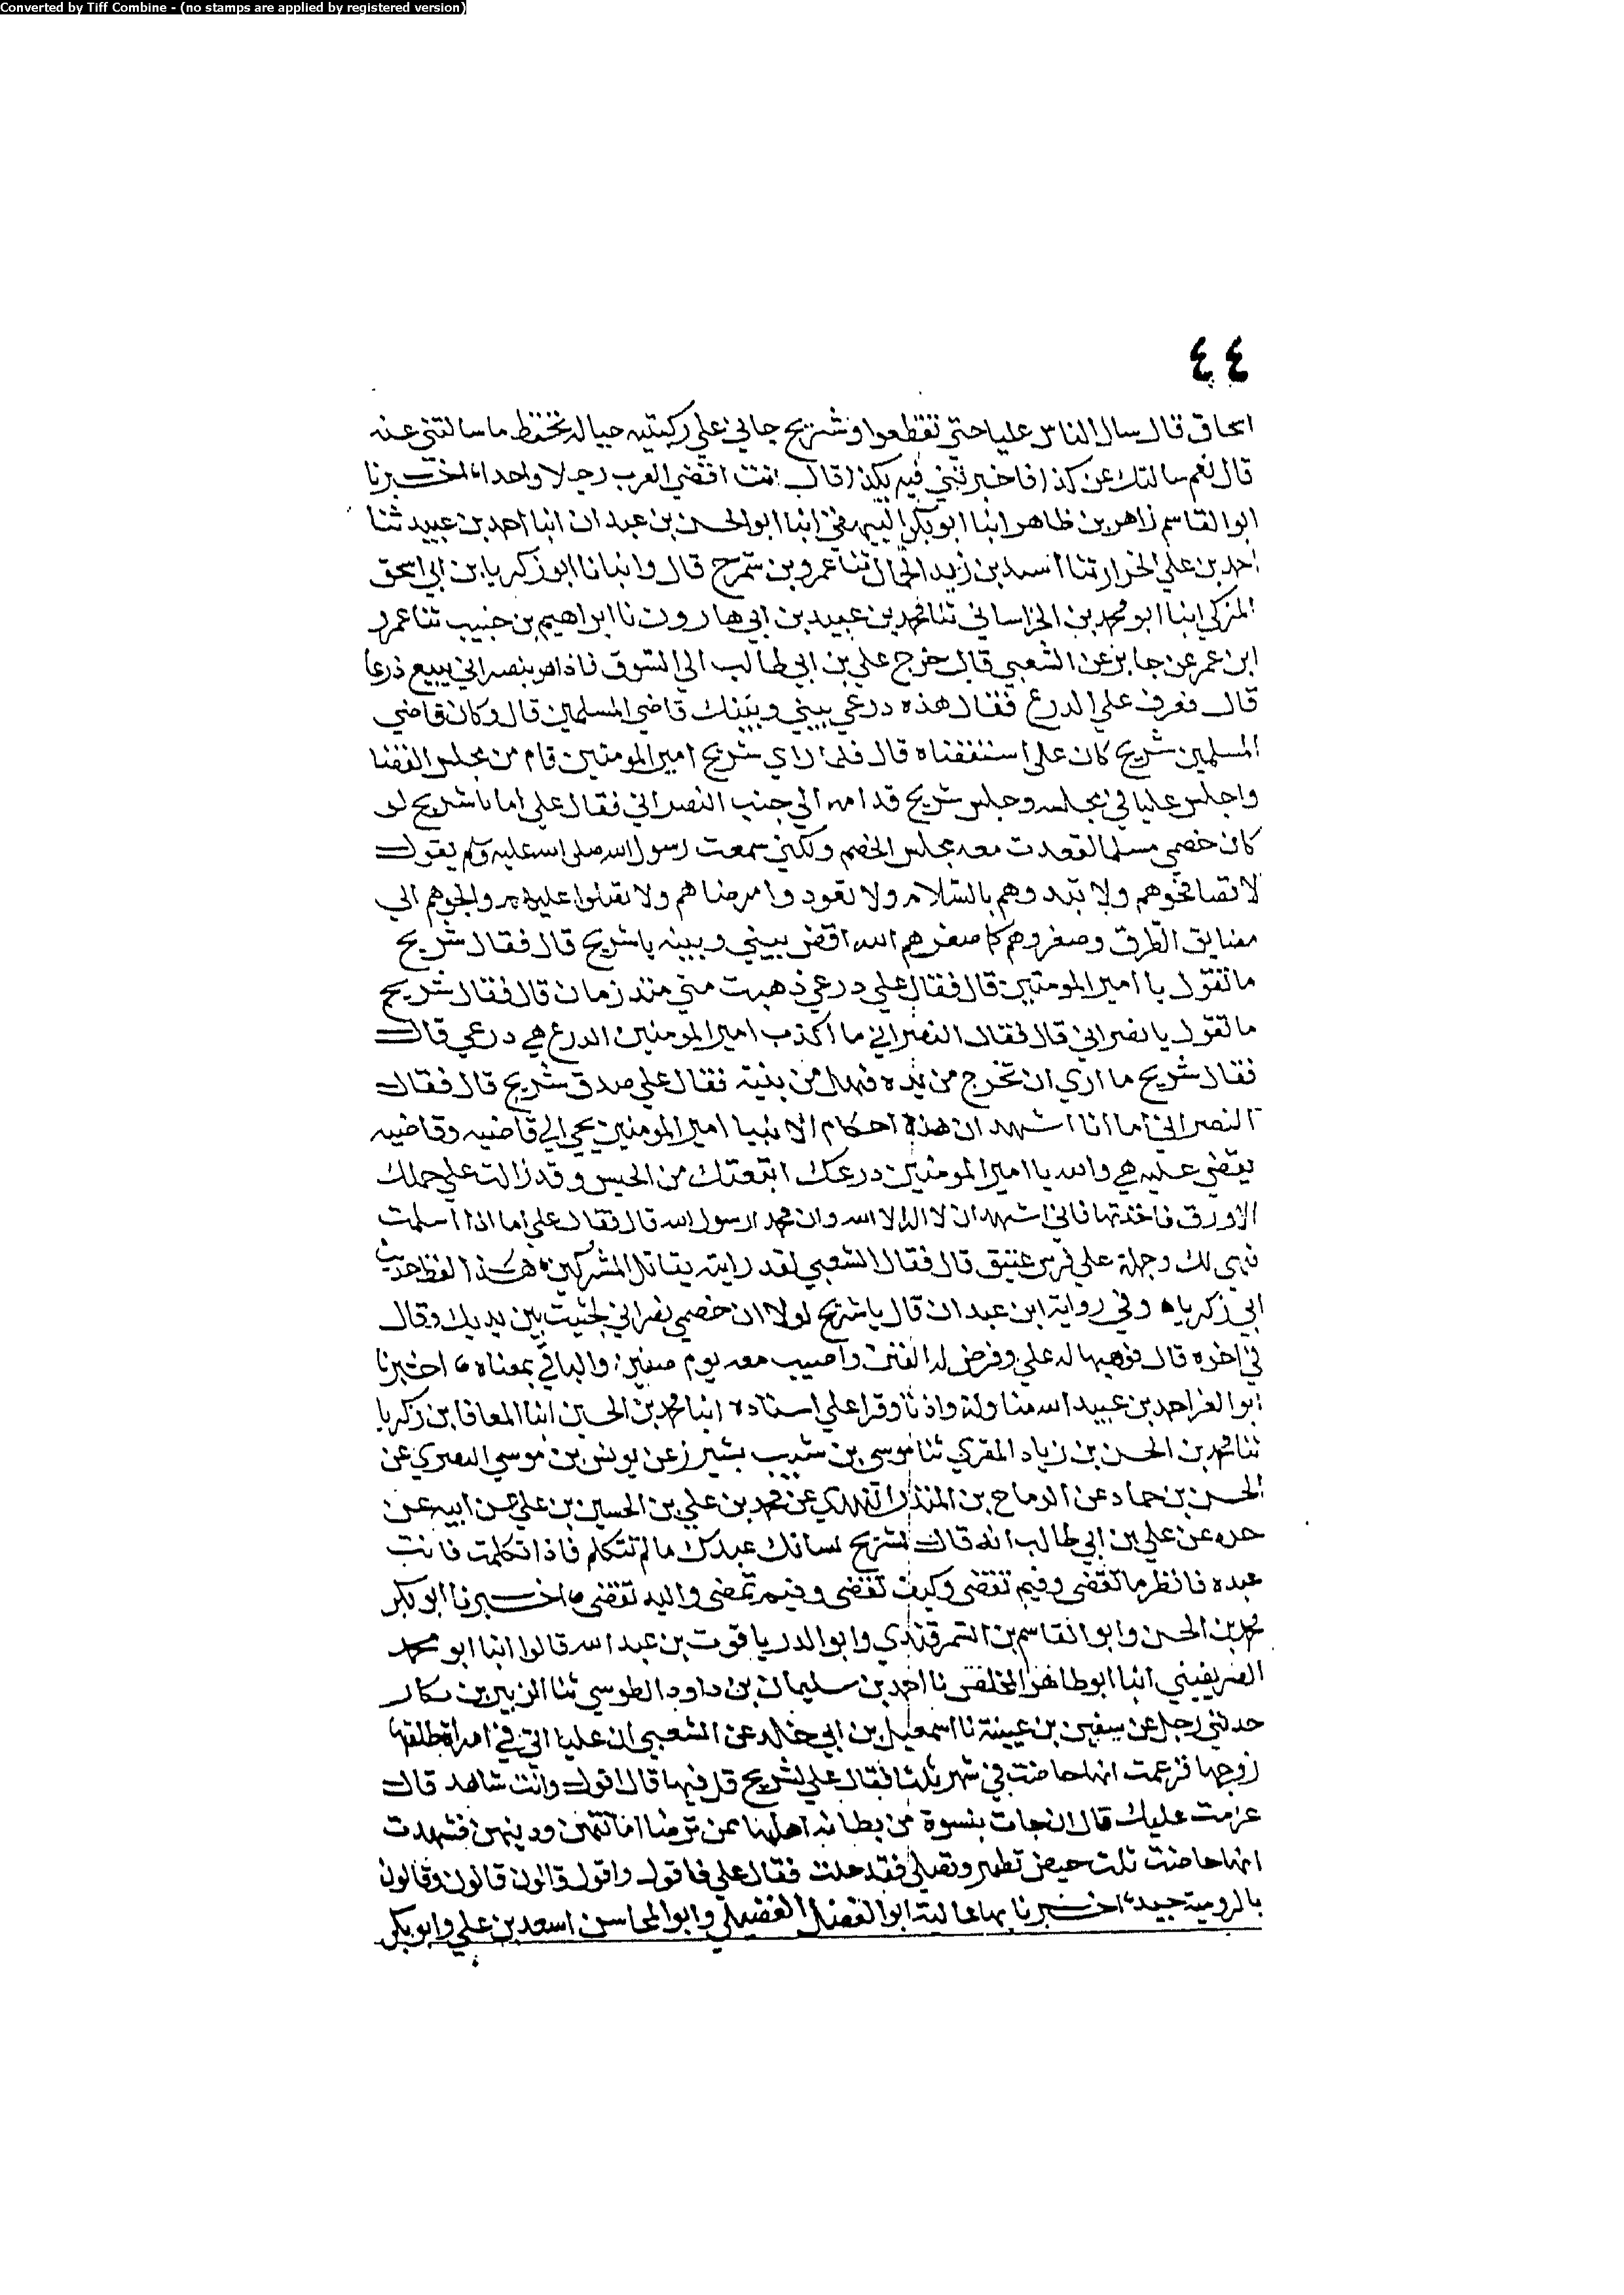 Converted by Tiff Combine - (no stamps are applied by registered version)
٤٤
اسحاق قال سال الناس عليا حتى تقطعوا وشريح جاثي على ركبتيه حياله تحفظ ما سالتني عنه
قال نعم سالتك عن كذا فاخبرتني فيه بكذا قال انت اقضى العرب رجلا واحدا اخبرنا
ابو القاسم زاهر بن طاهر انبا ابو بكر البيهقي انبا ابو الحسن بن عبدان انبا احمد بن عبيد ثنا
احمد بن علي الخزاز ثنا اسيد بن زيد الجمال ثنا عمرو بن شمر ح قال وانبانا ابو زكريا بن ابي اسحق
المزكي انبا ابو محمد بن الخراساني ثنا محمد بن عبيد بن ابي هارون نا ابراهيم بن حبيب ثنا عمرو
ابن عمر عن جابر عن الشعبي قال خرج علي بن ابي طالب الى السوق فاذا هو بنصراني يبيع درعا
قال فعرف علي الدرع فقال هذه درعي بيني وبينك قاضي المسلمين قال وكان قاضي
المسلمين شريح كان علي استقضاه قال فلما راي شريح امير المومنين قام من مجلس القضا
واجلس عليا في مجلسه وجلس شريح قدامه الى جنب النصراني فقال علي اما يا شريح لو
كان خصمي مسلما لقعدت معه مجلس الخصم ولكني سمعت رسول الله صلى الله عليه وسلم يقول
لا تصافحوهم ولا تبدوهم بالسلام ولا تعودوا مرضاهم ولا تصلوا عليهم والجوهم الى
مضايق الطرق وصغروهم كما صغرهم الله اقض بيني وبينه يا شريح قال فقال شريح
ما تقول يا امير المومنين قال فقال علي درعي ذهبت مني منذ زمان قال فقال شريح
ما تقول يا نصراني قال فقال النصراني ما اكذب امير المومنين الدرع هي درعي قال
فقال شريح ما اري ان تخرج من يده فهل من بينة فقال علي صدق شريح قال فقال
النصراني اما انا اشهد ان هذه احكام الانبيا امير المومنين يجي الى قاضيه وقاضيه
يقضي عليه هي والله يا امير المومنين درعك ابتعتك من الجيس وقد زالت على جملك
الاورق فاخذتها فاني اشهد ان لا اله الا الله وان محمد رسول الله قال فقال علي اما اذا اسلمت
فهي لك وحمله على فرس عتيق قال فقال الشعبي لقد رايته يقاتل المشركين هذا لفظ حديث
ابي زكريا وفي رواية ابن عبدان قال يا شريح لولا ان خصمي نصراني لجثيت بين يديك وقال
في اخره قال فوهبها له علي وفرض له الفين واصيب معه يوم صفين والباقي بمعناه اخبرنا
ابو العز احمد بن عبيد الله مناولة واذنا وقرا علي اسناده انبا محمد بن الحسين انبا المعافا بن زكريا
ثنا محمد بن الحسن بن زياد المقري ثنا موسى بن شبيب بشيرز عن يونس بن موسي البصري عن
الحسن بن حماد عن الرماح بن المنذر النهدي عن محمد بن علي بن الحسين بن علي عن ابيه عن
جده عن علي بن ابي طالب انه قال لشريح لسانك عبدك ما لم تتكلم فاذا تكلمت فانت
عبده فانظر ما تقضي وفيم تقضي وكيف تقضي وفيم تمضي واليه تفضي اخبرنا ابو بكر
محمد بن الحسن وابو القاسم بن السمرقندي وابو الدر ياقوت بن عبد الله قالوا انبا ابو محمد
الصريفيني انبا ابو طاهر المخلص نا احمد بن سليمان بن داود الطوسي ثنا الزبير بن بكار
حدثني رجل عن سفين بن عيينة نا اسمعيل بن ابي خالد عن الشعبي ان عليا اتي في امراة طلقها
زوجها فزعمت انها حاضت في شهر ثلثا فقال علي لشريح قل فيها قال اقول وانت شاهد قال
عزمت عليك قال ان جات بنسوة من بطانة اهلها ممن ترضا امانتهن ودينهن فشهدت
انها حاضت ثلث حيض تطهر وتصلي فقد حلت فقال علي فاقول واقول قالون قالون وقالون
بالرومية جيد اخبرنا بها عالية ابو الفضل الفضيلي وابو المحاسن اسعد بن علي وابو بكر